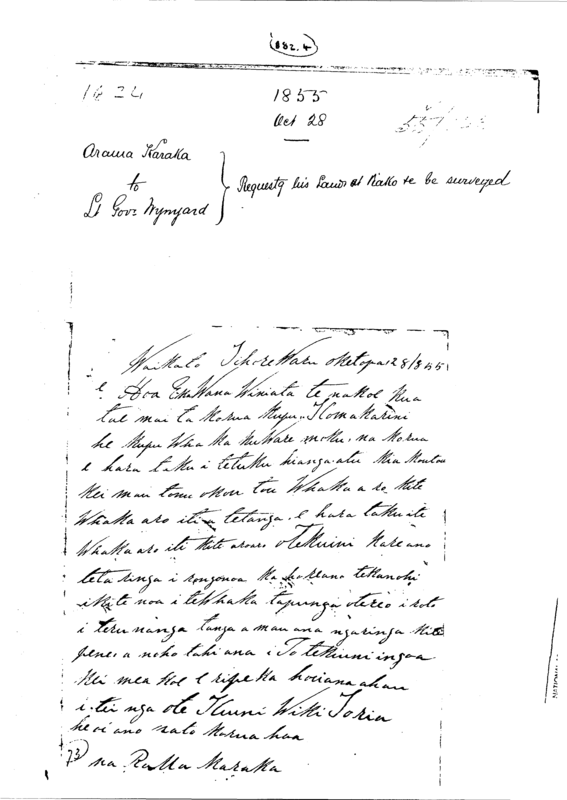 (082.4)
1855
Oct 28
Arama Karaka
to
Lt Govr Wynyard
Requestg his Lands at Piako to be surveyed
Waikato Ihorewaru oketopa 28/855
e Hoa EkaWana Winiata tenakoe kua
tae mai ta korua kupu
he kupu Whaka kuware moku. na korua
e hara taku i tetuku kiangaatu kia koutou
kei mau tonu okou tou Whaka a ro kite
Whaka aro iti a tetanga. e hara taku ite
Whaka aro iti kite aroaro oTekuini kareano
teta ringa i rongonoa ka koreano tekanohi
ikite noa i teWhaka tapunga otereo i roto
i teru nanga tanga a mau ana ngaringa kite
pene. a noho tahi ana i To tekuini ingoa
kei mea koe e ripeka hoiana ahau
i. te nga ote Kuini WikiToria
heoi ano nato korua hoa
73
na